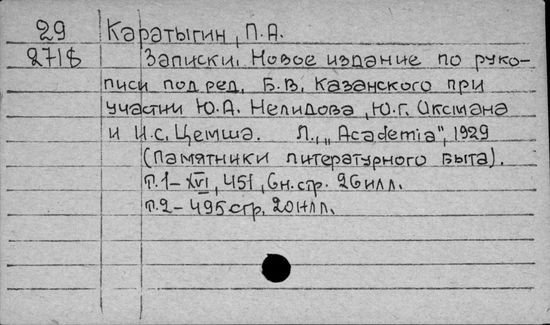 29 Каратыгин, П.А.
2718 Записки. Новое издание по руко-
писи под ред. Б.В. Казанского при
участии Ю.А. Нелидова, Ю.Г. Оксмана
и И.С. Цемша. Л., "Academia", 1929
(Памятники литературного быта).
т.1 – XVI, 451, 6н.стр. 26илл.
т.2 – 495стр. 20илл.